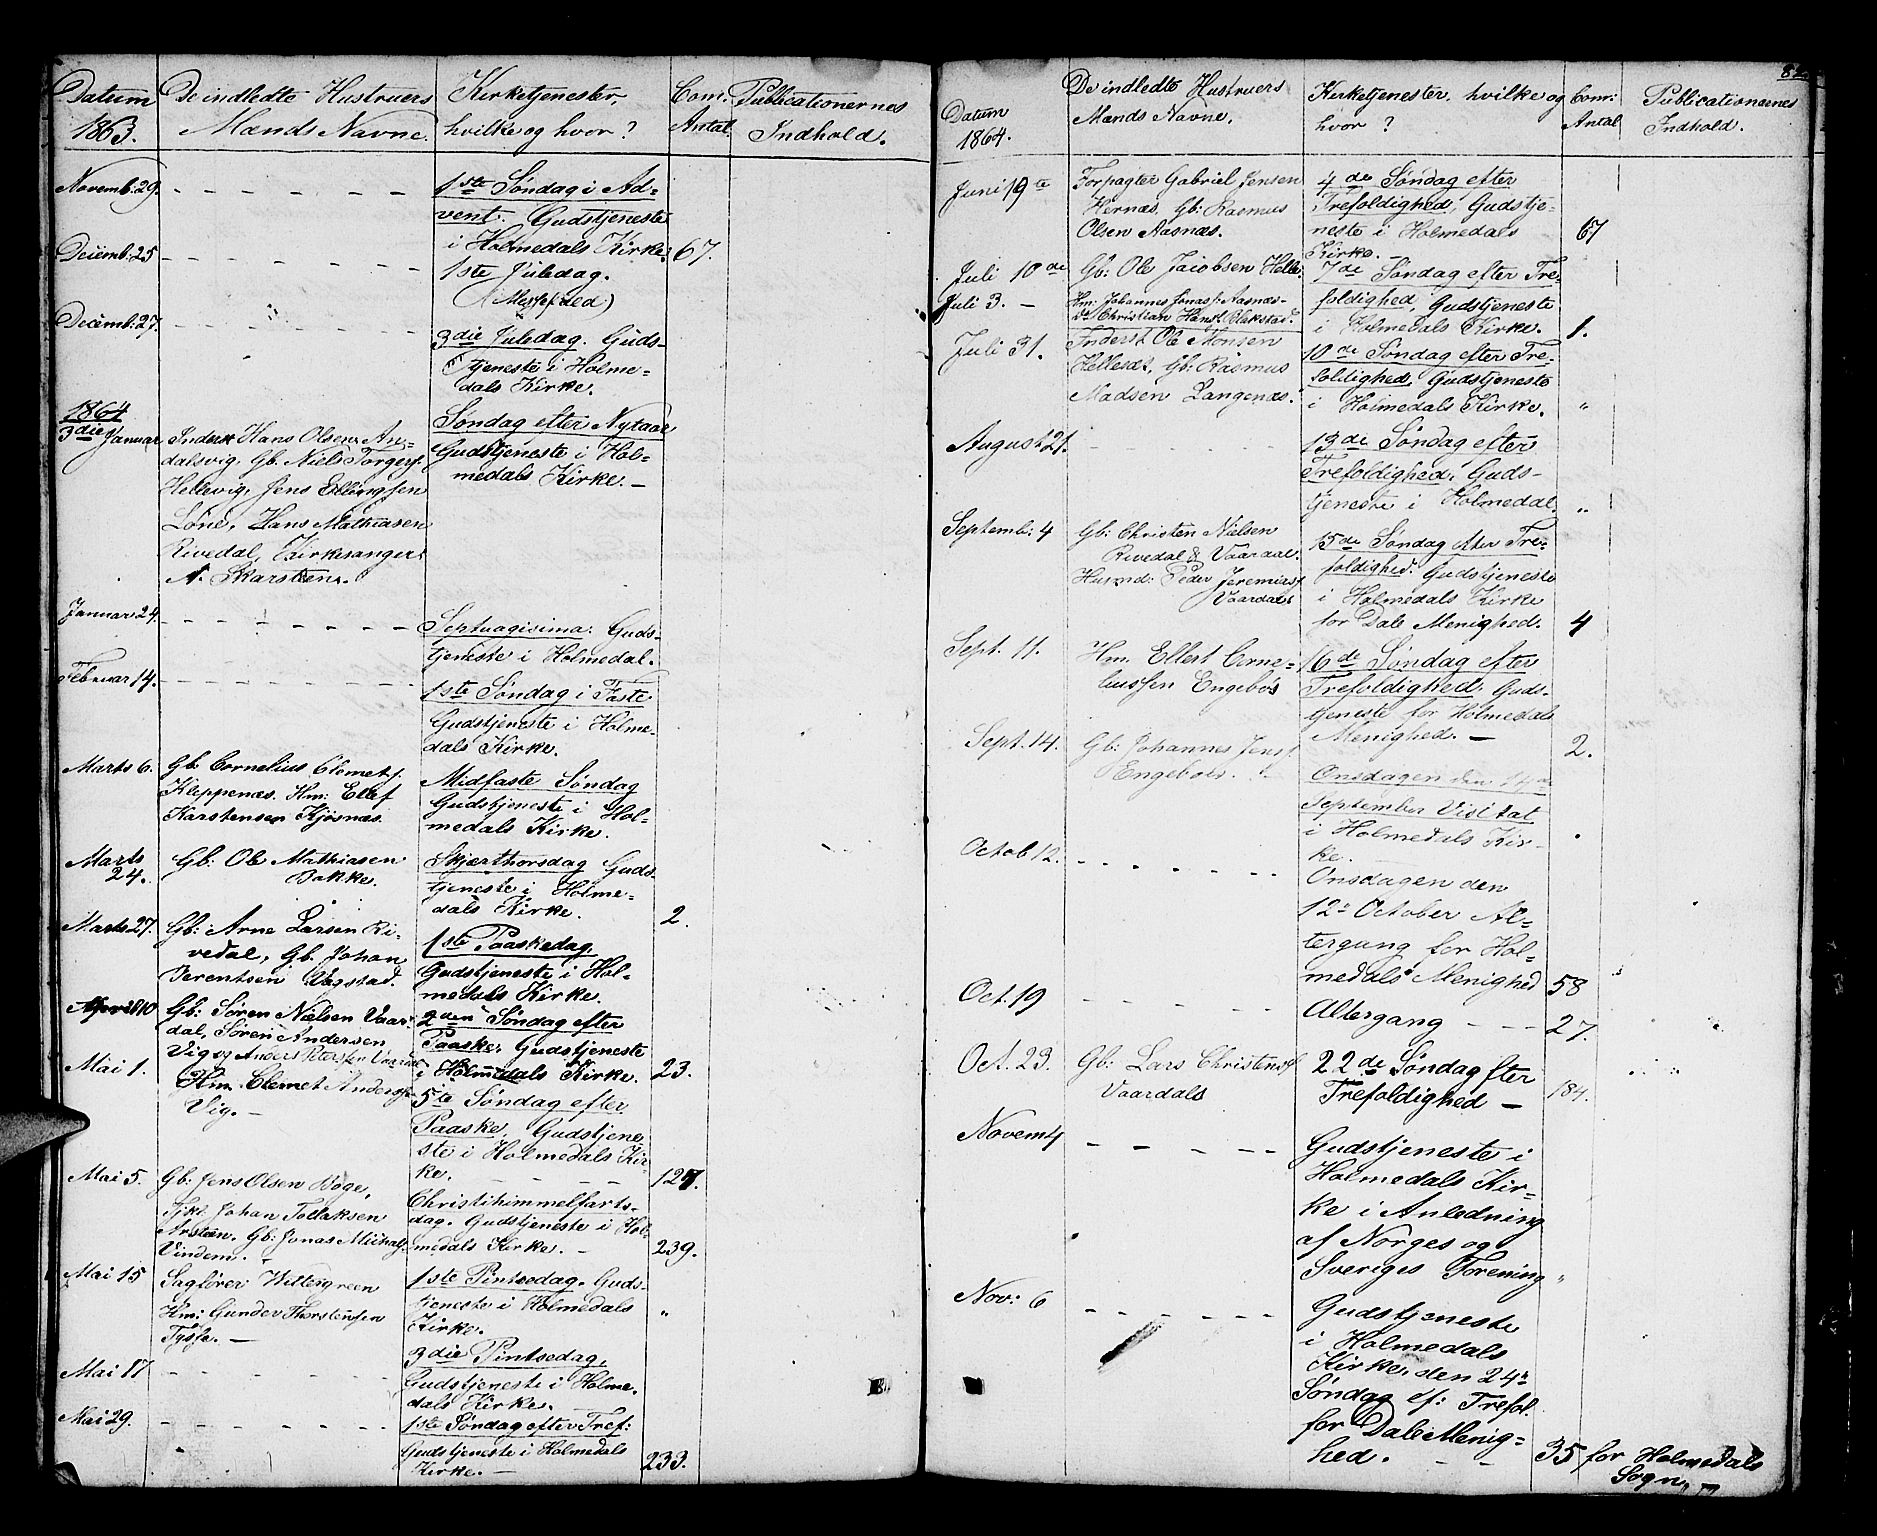 Datum
1863.
De indledte Hustruers
Mænds Navne.
Kirketjenester,
hvilke og hvor?
Com:
Antal
Publicationernes
Indhold.
Novemb: 29.
1ste Søndag i Ad-
vent. Gudstjeneste
i Holmedals Kirke.
67.
Decemb: 25
1ste Juledag.
(Messefred)
Decemb: 27.
3die Juledag. Guds-
tjeneste i Holme-
dals Kirke.
1864
3die Januar
Inderst Hans Olsen An-
dalsvig, Gb. Niels Torgers.
Hellevig, Jens Ellingsen
Lone, Hans Mathiasen
Rivedal, Kirkesanger
A. Skarsten.
Søndag efter Nytaar
Gudstjeneste i Hol-
medals Kirke. -
Januar 24.
Septuagisima. Guds-
tjeneste i Holmedal.
Februar 14.
1ste Søndag i Faste
Gudstjeneste i Holme-
dals Kirke.
Marts 6.
Gb. Cornelius Clemets.
Kleppenæs. Hm: Ellef
Karstensen Kjøsnæs.
Midfaste Søndag
Gudstjeneste i Hol-
medals Kirke.
Marts
24.
Gb: Ole Mathiasen
Bakke.
Skjærthorsdag Guds-
tjeneste i Holme-
dals Kirke.
2.
Marts 27.
Gb: Arne Larsen Ri-
vedal, Gb. Johan
Berentsen Vagstad.
1ste Paaskedag.
Gudstjeneste i Hol-
medals Kirke.
April 10
Gb: Søren Nielsen Vaar-
dal, Søren Andersen
Vig og Anders Petersen Vaardal
2den Søndag efter
Paaske. Gudstjeneste
i Holmedals Kirke.
23.
Mai 1.
Hm. Clemet Anders.
Vig. -
5te Søndag efter
Paaske. Gudstjene-
ste i Holmedals Kir-
ke.
127.
Mai 5.
Gb: Jens Olsen Bøge,
Johan Tollaksen
Gb: Jonas Michals.
Vindem. -
Christihimmelfarts-
dag. Gudstjeneste i Hol-
medals Kirke. -
239.
Mai 15
Sagfører Wettergreen
Hm: Gunder Thorstensen
Tysse. -
1ste Pintsedag. Guds-
tjeneste i Holmedals
Kirke.
"
Mai 17
3die Pintsedag,
Gudstjeneste i Holme-
dals Kirke.
Mai 29.
1ste Søndag efter Tref:
Gudstjeneste i Holmedals
Kirke. -
233.
Datum
1864.
De indledte Hustruers
Mænds Navne.
Kirketjenester, hvilke og
hvor?
Com:
Antal
Publicationernes
Indhold.
Juni 19te
Forpagter Gabriel Jensen
Hernæs. Gb: Rasmus
Olsen Aasnæs.
4de Søndag efter
Trefoldighed, Gudstje-
neste i Holmedals
Kirke. -
67
Juli 10de
Gb: Ole Jacobsen Helle.
7de Søndag efter Tre-
foldighed, Gudstjeneste
i Holmedals Kirke.
1.
Juli 3. -
Hm: Johannes Jonas. Aasnæs-
Christian Hans. Blakstad.
Juli 31.
Inderst Ole Monsen
Gb: Rasmus
Madsen Langenæs.
10de Søndag efter Tre-
foldighed, Gudstjeneste
i Holmedals Kirke.
"
August 21.
13de Søndag efter
Trefoldighed. Guds-
tjeneste i Holmedal.
"
Septemb: 4
Gb: Christen Nielsen
Rivedal & Vaardal.
Husmd: Peder Jeremias.
Vaardal
15de Søndag efter Tre-
foldighed. Gudstjeneste
i Holmedals Kirke
for Dale Menighed.
4
Sept. 11.
Hm. Ellert Corne-
liussen Engebøs
16de Søndag efter
Trefoldighed. Guds-
tjeneste for Holmedals
Menighed. -
2.
Sept. 14.
Gb: Johannes Jens.
Engebøes.
Onsdagen den 14de
September Visitat
i Holmedals Kir-
ke.
Octob 12.
Onsdagen den
12te October Al-
tergang for Hol-
medals Menighed
58
Oct. 19
Altergang
27.
Oct. 23.
Gb: Lars Christens.
Vaardals
22de Søndag efter
Trefoldighed -
184.
Novem 4
Gudstjeneste i
Holmedals Kir-
ke i Anledning
af Norges og
Sveriges Forening
"
Nov: 6
Gudstjeneste
i Holmedals
Kirke, den 24de
Søndag ef: Trefol.
for Dale Menig-
hed.
35 for Holmedals
Sogn.